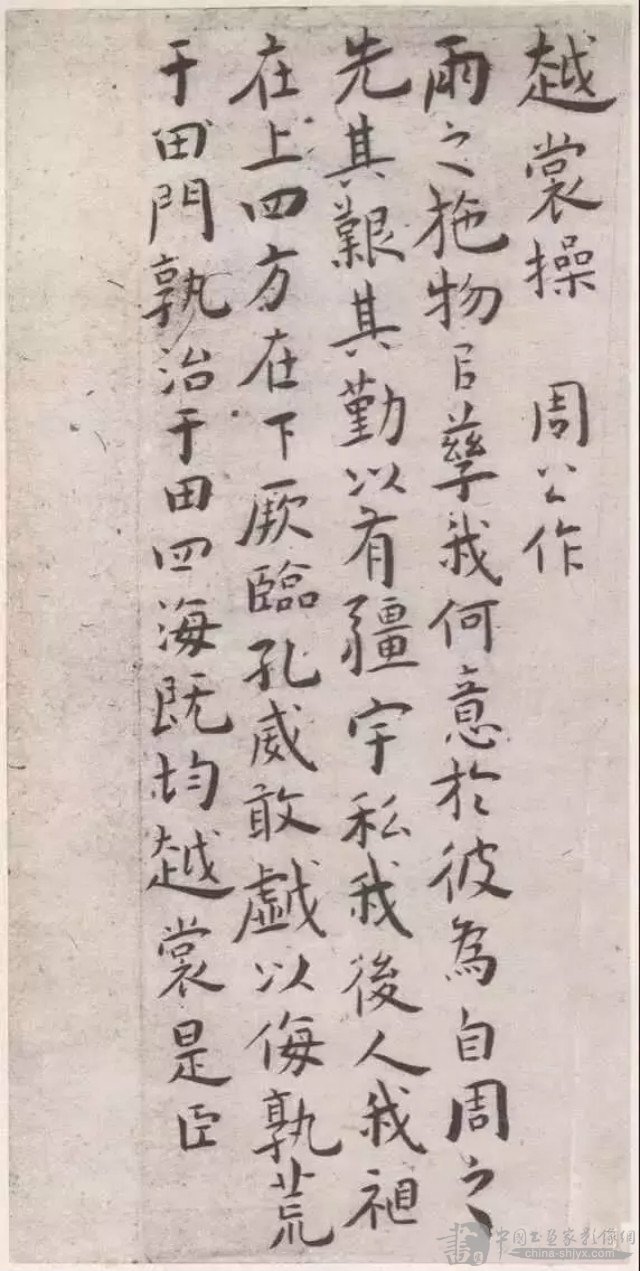 越裳操 周公作
雨之施物㠯孳我何意於彼為自周之
先其艱其勤以有疆宇私我後人我祖
在上四方在下厥臨孔威敢戲以侮孰荒
于田門孰治于田四海既均越裳是臣
中國书画家影像網
www.china-shjyx.com